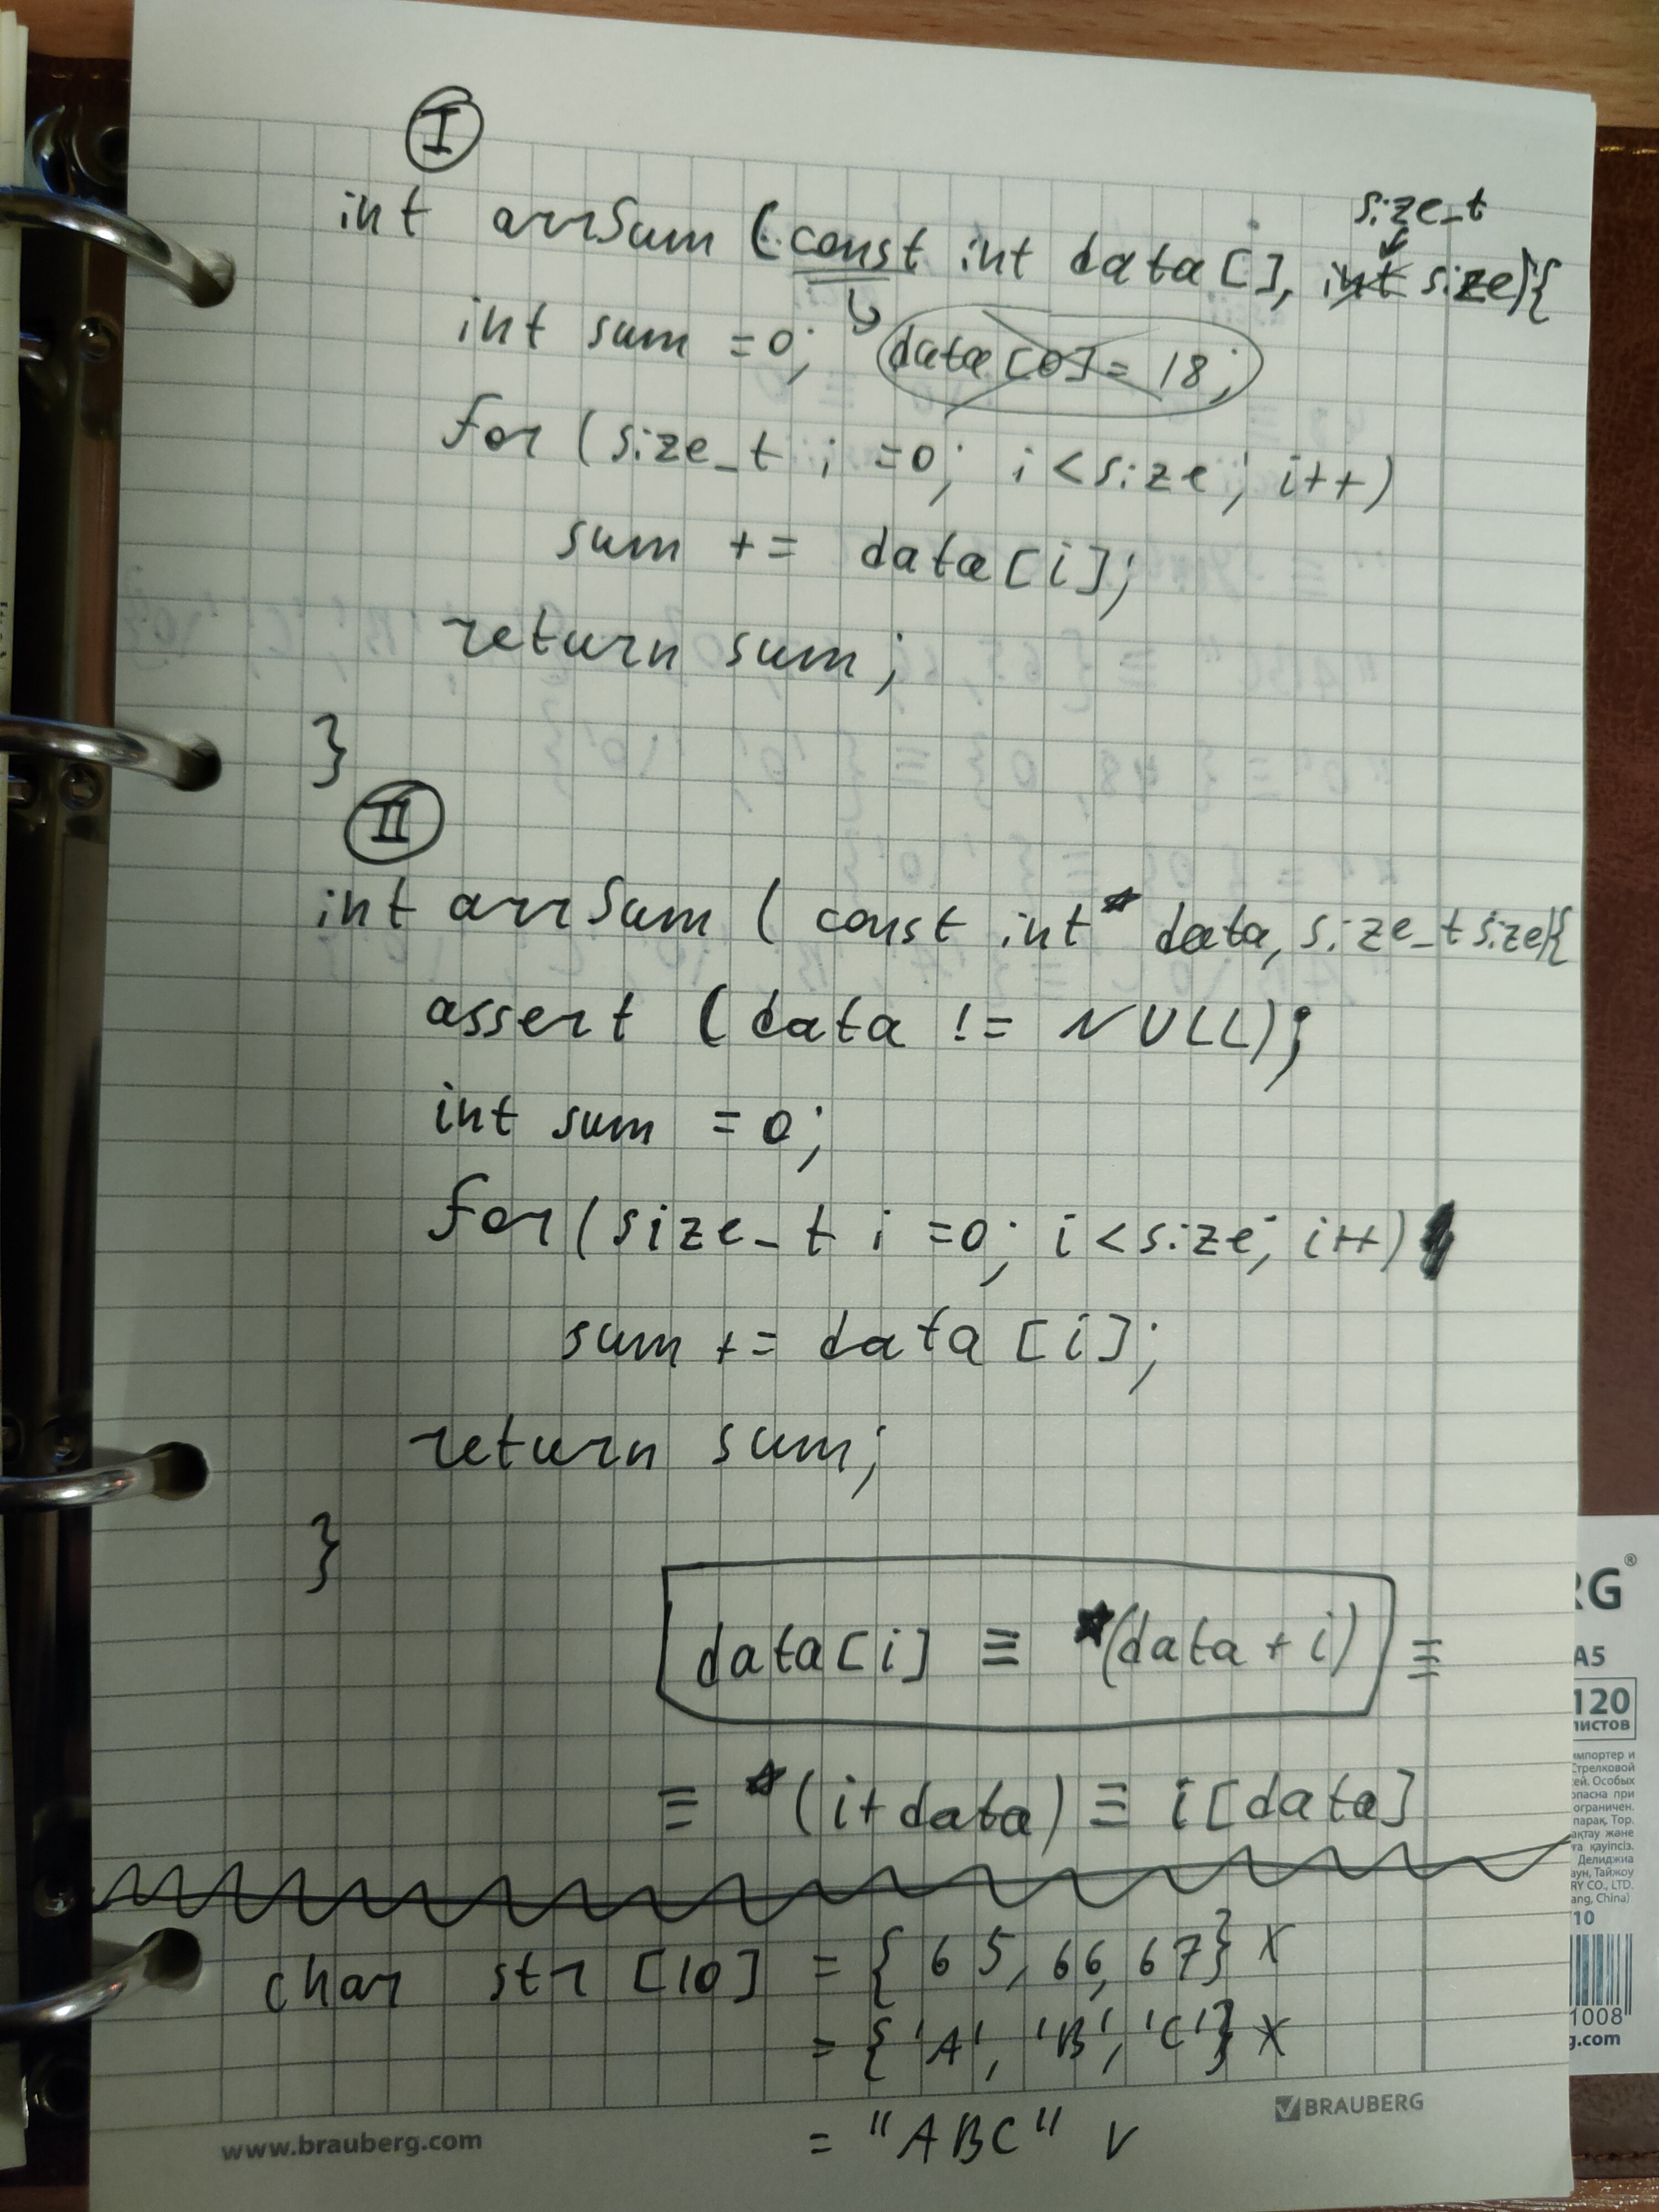 I
size_t
int arrSum (const int data[], int size){
int sum =0; data[0]= 18;
for (size_t i =0; i<size; i++)
sum += data[i];
return sum;
}
II
int arrSum ( const int* data, size_t size){
assert (data != NULL);
int sum =0;
for(size_t i =0; i<size; i++)
sum += data [i];
return sum;
}
data[i] ≡ *(data+i) ≡
≡ *(i+data) ≡ i[data]
char str [10] = {65, 66, 67} X
= {'A', 'B', 'C'} X
= "ABC" V
www.brauberg.com
BRAUBERG
RG®
A5
120
листов
импортер и
Стрелковой
ей. Особых
опасна при
ограничен.
парак, Тор.
ақтау және
ға қауіпсіз.
Делиджиа
аун, Тайжоу
RY CO., LTD.
ang, China)
10
1008
g.com